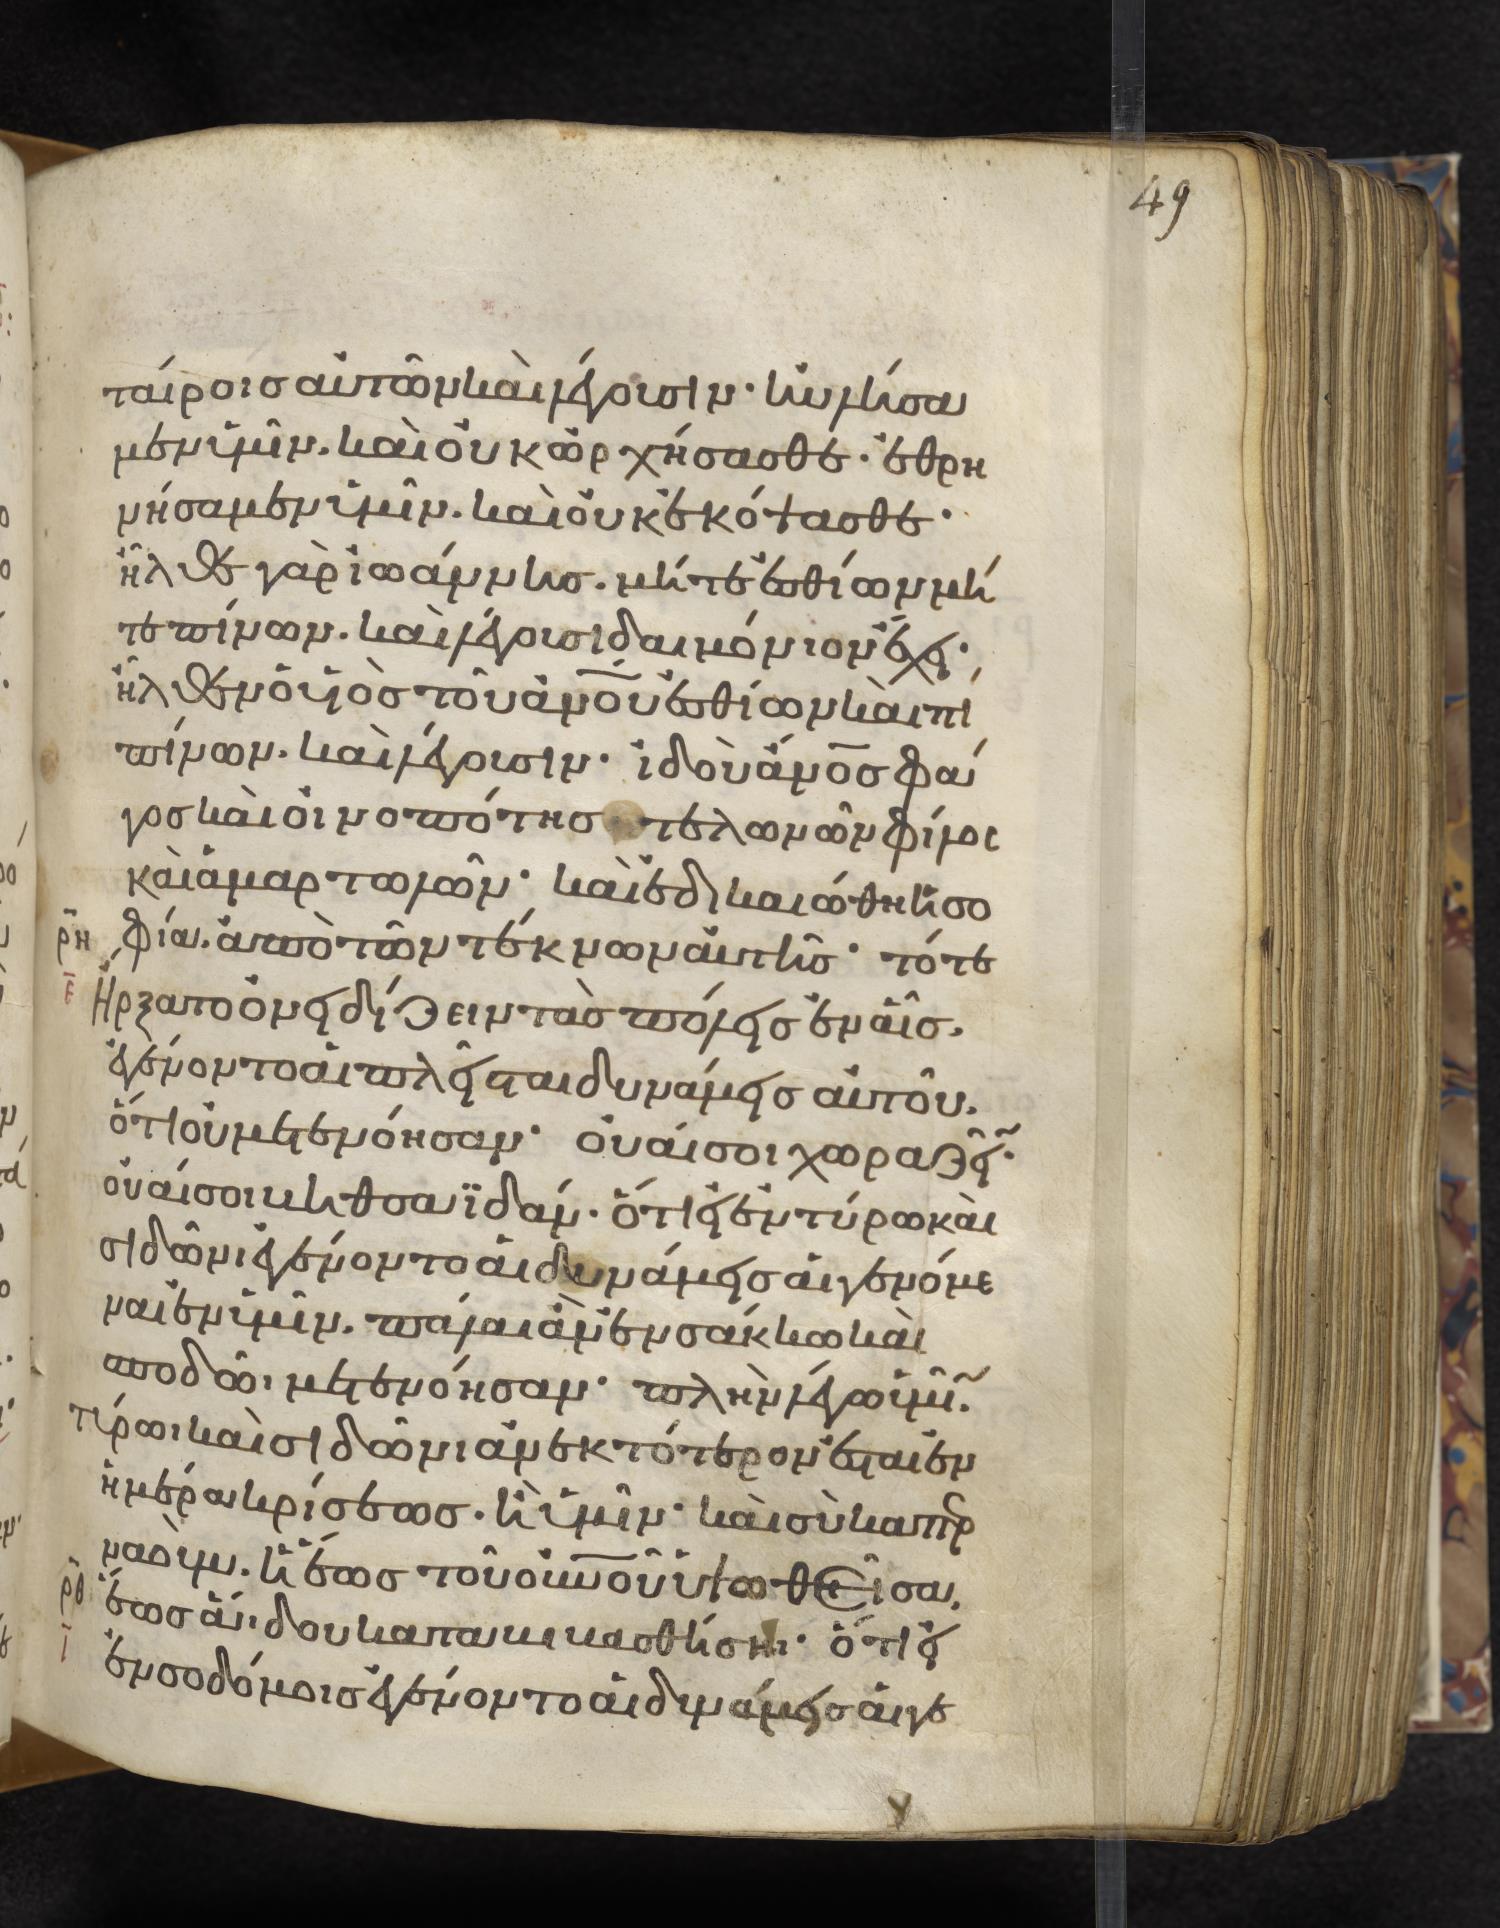 49
ταίροις αὐτῶν καὶ λέγουσιν· ηὐλήσα
μεν ὑμῖν. καὶ οὐκ ὠρχήσασθε· ἐθρη
νήσαμεν ὑμῖν. καὶ οὐκ ἐκόψασθε·
ἦλθε γὰρ ἰωάννης. μήτε ἐσθίων μή
τε πίνων. καὶ λέγουσι δαιμόνιον ἔχει·
ἦλθεν ὁ υἱὸς τοῦ ἀν̅ο̅υ̅ ἐσθίων καὶ πί
πίνων. καὶ λέγουσιν· ἰδοὺ ἄν̅ο̅ς̅ φά
γος καὶ οἰνοπότης τελωνῶν φίλος
καὶ ἁμαρτωλῶν· καὶ ἐδικαιώθη ἡ σο
ρη φία. ἀπὸ τῶν τέκνων αὐτῆς· τότε
ε Ἤρξατο ὀνειδίζειν τὰς πόλεις ἐν αἷς.
ἐγένοντο αἱ πλεῖσται δυνάμεις αὐτοῦ.
ὅτι οὐ μετενόησαν· οὐαί σοι χωραζεῖν·
οὐαί σοι βηθσαϊδάν· ὅτι εἰ ἐν τύρω καὶ
σιδῶνι ἐγένοντο αἱ δυνάμεις αἱ γενόμε
ναι ἐν ὑμῖν. πάλαι ἂν ἐν σάκκω καὶ
σποδῶι μετενόησαν· πλὴν λέγω ὑμῖν.
τύρωι καὶ σιδῶνι ἀνεκτότερον ἔσται ἐν
ἡμέρα κρίσεως. ἢ ὑμῖν· καὶ σὺ καπερ
ναοὺμ. ἡ ἕως τοῦ οὐ̅ν̅ο̅ῦ̅ ὑψωθεῖσα,
ρθ ἕως ἅιδου καταβιβασθήσηι· ὅτι εἰ
ι ἐν σοδόμοις ἐγένοντο αἱ δυνάμεις αἱ γε